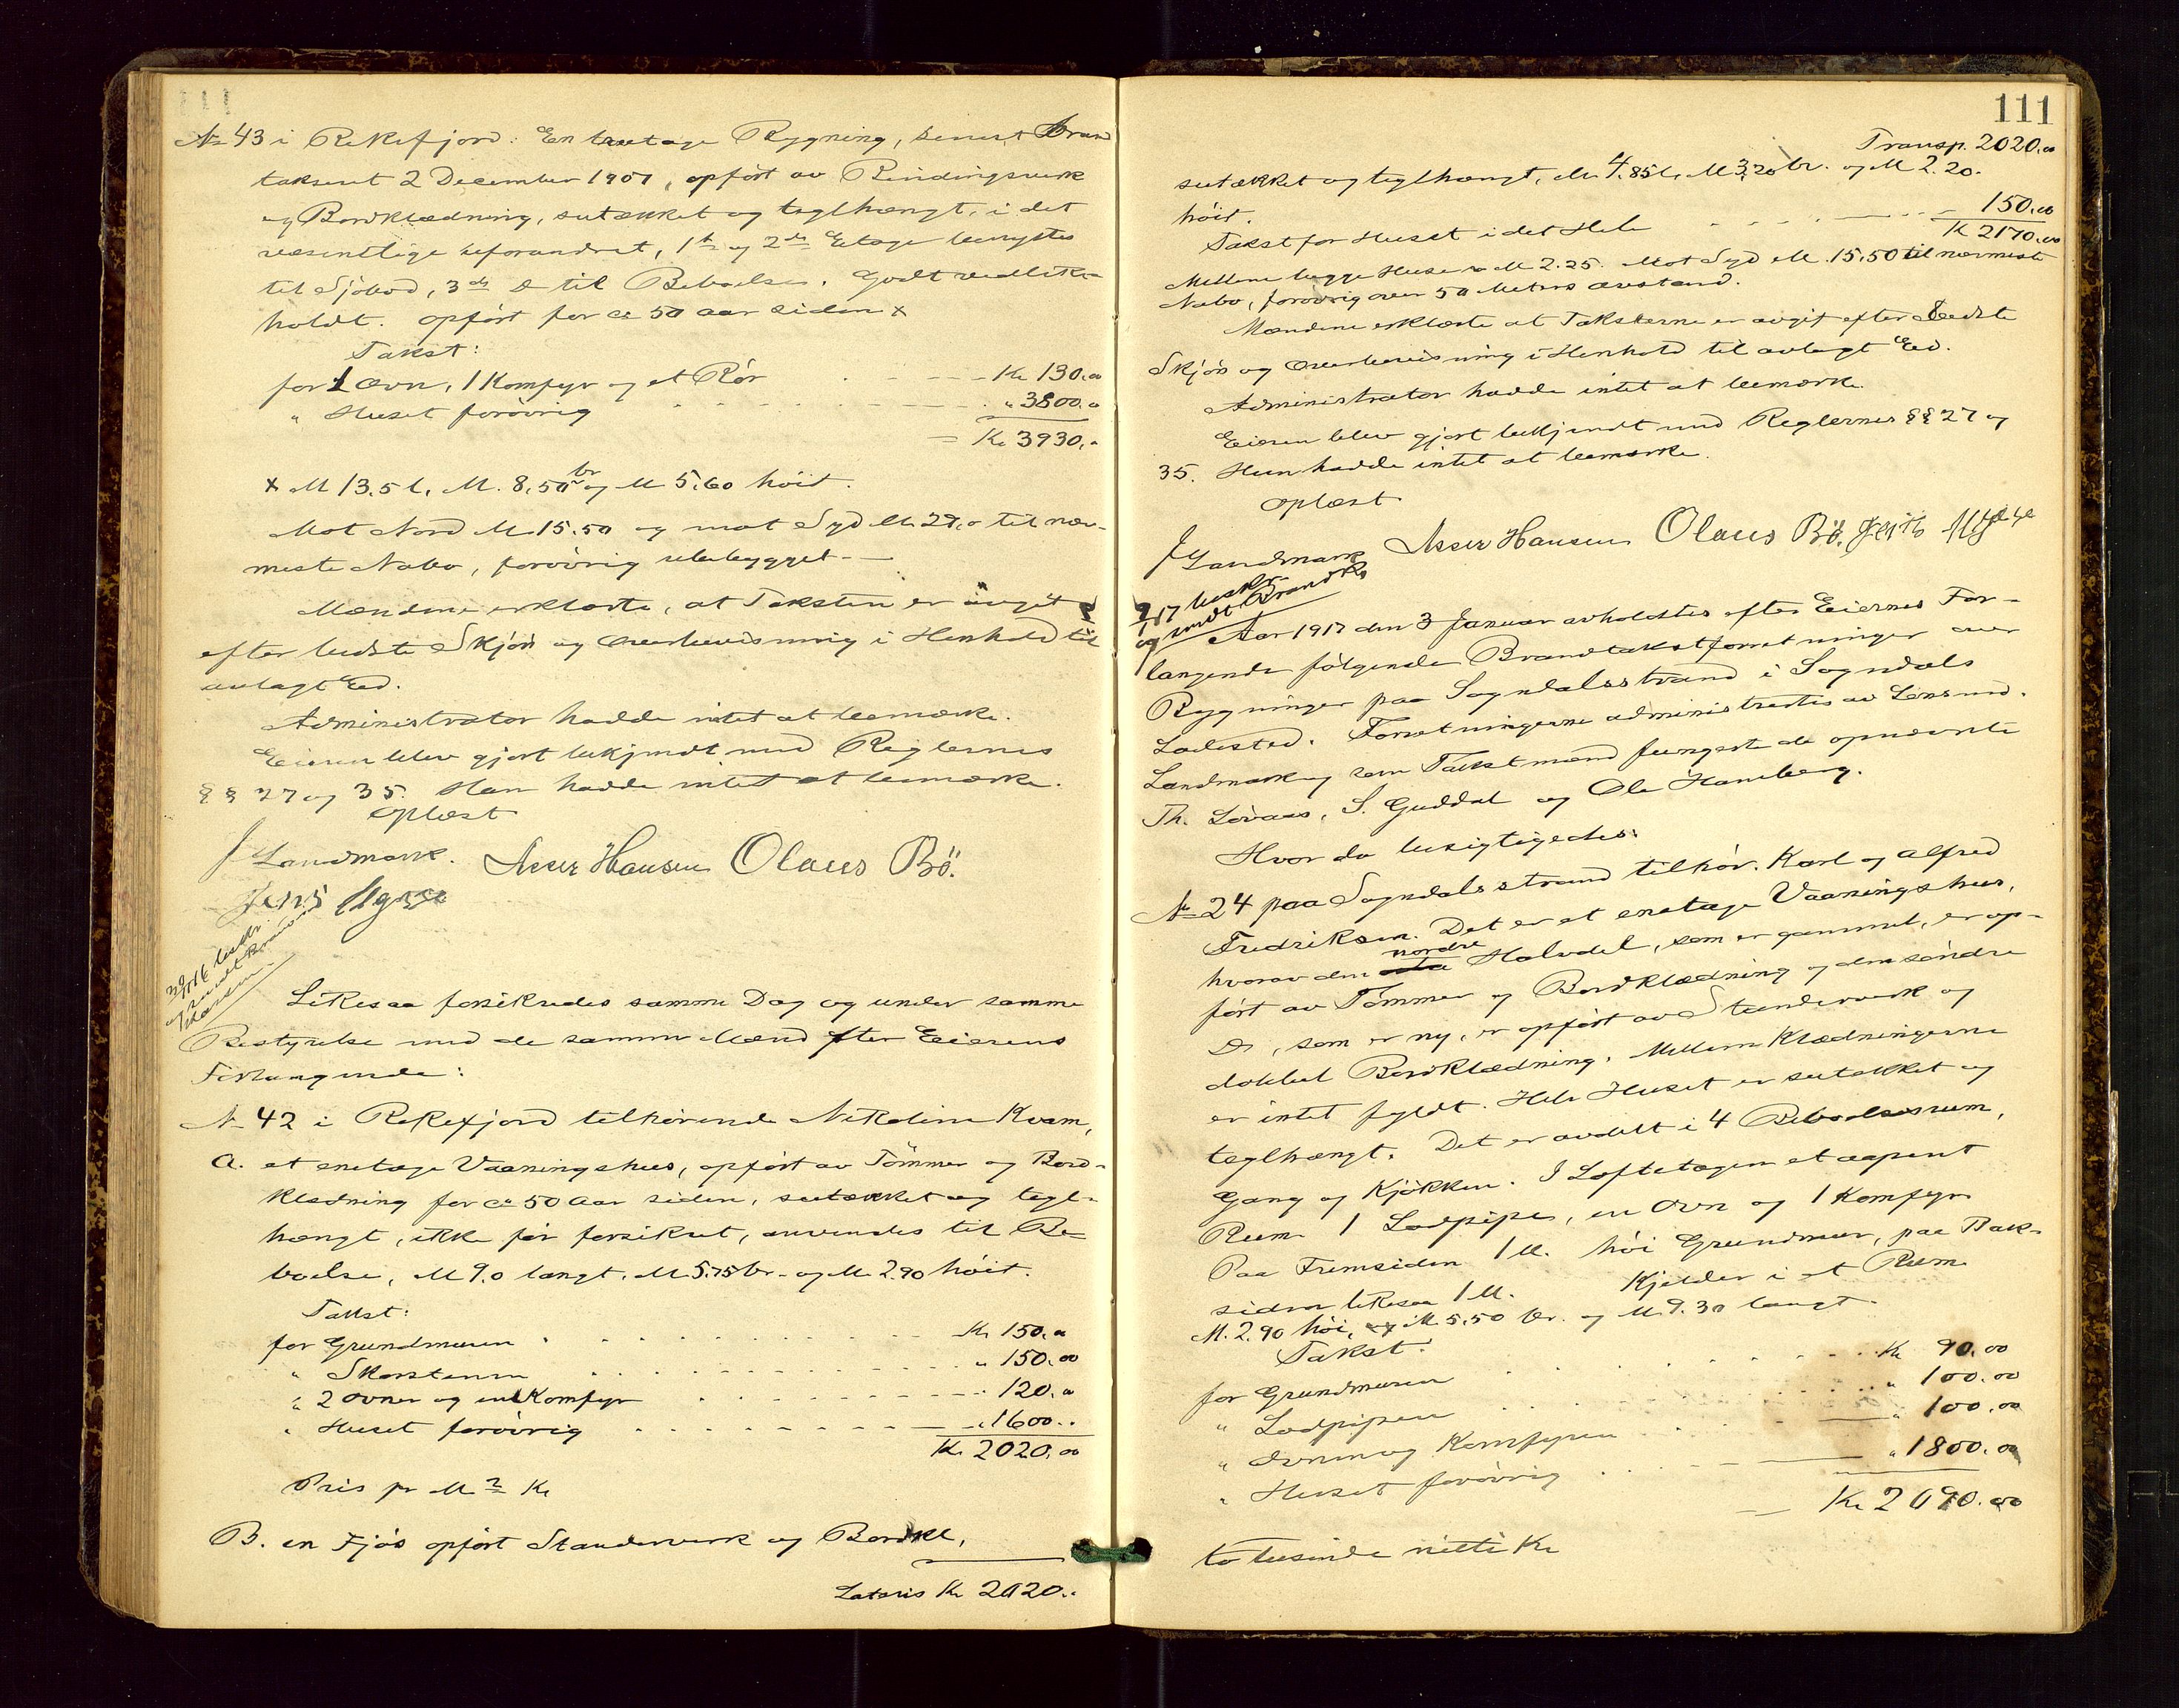 № 43 i Rekefjord: En treetages Bygning, senest Brand
takseret 2 December 1907, opført av Bindingsverk
og Bordklædning, sutækket og teglhængt, i det
væsentlige uforandret, 1ste og 2den Etage benyttes
til Sjøbod, 3die D til Beboelse. Godt vedlike-
holdt. Opført for ca 50 aar siden x
Takst:
for 1 Ovn, 1 Komfyr og et Rør Kr 130.00
" Huset forøvrig " 3800.00
Kr 3930.-
x M 13.5 l. M. 8,50 br og M 5,60 høit.
Mot Nord M 15.50 og mot Syd M 29.0 til nær-
meste Nabo, forøvrig ubebygget.
Mændene erklærte, at Taksten er avgit
efter bedste Skjøn og Overbevisning i Henhold til
avlagt Ed.
Administrator hadde intet at bemerke.
Eieren blev gjort bekjendt med Reglernes
§§ 27 og 35. Han hadde intet at bemærke.
Oplæst
J Landmark. Asser Hansen Olaus Bö.
Jens
Likesaa forsikredes samme Dag og under samme
Bestyrelse med de samme Mænd efter Eierens
Forlangende:
№ 42 i Rekefjord tilhørende Nikoline Kvam,
a. et enetages Vaaningshus, opført av Tømmer og Bord-
klædning for ca 50 Aar siden, sutækket og tegl-
hængt, ikke før forsikret, anvendes til Be-
boelse, M 9.0 langt, M 5.75 br. og M 2.90 høit.
Takst:
for Grundmuren Kr 150.00
" Skorstenen " 150.00
" 2 Ovner og en Komfyr " 120.00
" Huset forøvrig " 1600..
Kr 2020.00
Pris pr M 2 Kr
B. en Fjøs opført Standerverk og Bordkl,
Lateris Kr 2020..
111
Transp. 2020.00
sutækket og teglhængt, M 4.85 l. M 3,20 br. og M 2.20.
høit. 150.00
Takst for Huset i det Hele K 2170.00
Mellem begge Huse M 2.25. Mot Syd M. 15,50 til nærmeste
Nabo, forøvrig over 50 Meters avstand.
Mændene erklærte at Taksterne er avgit efter bedste
Skjøn og Overbevisning i Henhold til avlagt Ed.
Administrator hadde intet at bemærke.
Eieren blev gjort bekjendt med Reglernes §§ 27 og
35. Hun hadde intet at bemærke.
Oplæst
J Landmark Asser Hansen Olaus Bö.
Aar 1917 den 3 Januar avholdtes efter Eiernes For-
langende følgende Brandtakstforretninger over
Bygninger paa Sogndalsstrand i Sogndals
Ladested. Forretningerne administrertes av Lensmd.
Landmark og som Takstmænd fungerte de opnævnte
Th. Lovaas, S. Guddal og Ole Hamberg.
Hvor da besigtigedes:
№ 24 paa Sogndalsstrand tilhør. Karl og Alfred
Fredriksen. Det er et enetages Vaaningshus,
hvorav den nordre Halvdel, som er gammel, er op-
ført av Tømmer og Bordklædning og den søndre
D, som er ny, er opført av Standerverk og
dobbel Bordklædning. Mellem Klædningerne
er intet fyldt. Hele Huset er sutækket og
teglhængt. Det er avdelt i 4 Beboelsesrum,
Gang og Kjøkken. I Loftetagen et aapent
Rum 1 Lodpipe, en Ovn og 1 Komfyr
Paa Fremsiden 1 M. høi Grundmur, paa Bak-
siden likesaa 1 M. Kjelder i et Rum
M. 2.90 høi, M 5.50 br. og M. 9.30 langt.
Takst:
for Grundmuren Kr 90.00
" Lodpipen " 100.00
" Ovnen og Komfyren " 100.00
" Huset forøvrig " 1800.00
Kr 2090.00
to tusinde nitti Kr